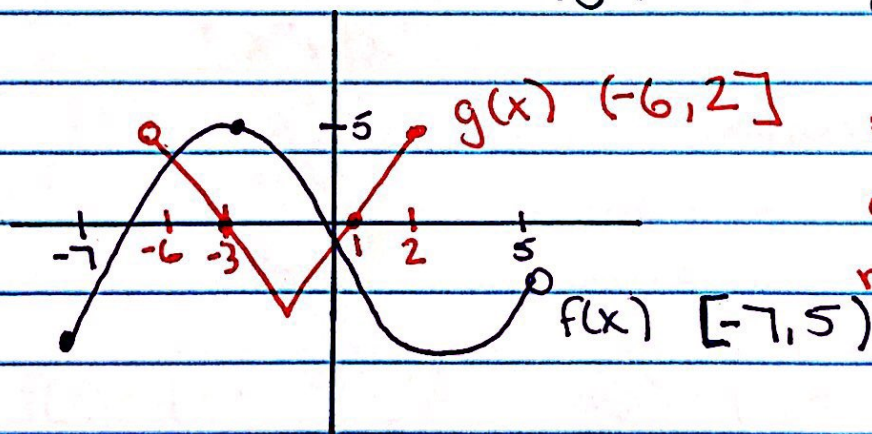 5
g(x) (-6,2]
-7 -6 -3 1 2 5
f(x) [-7,5)